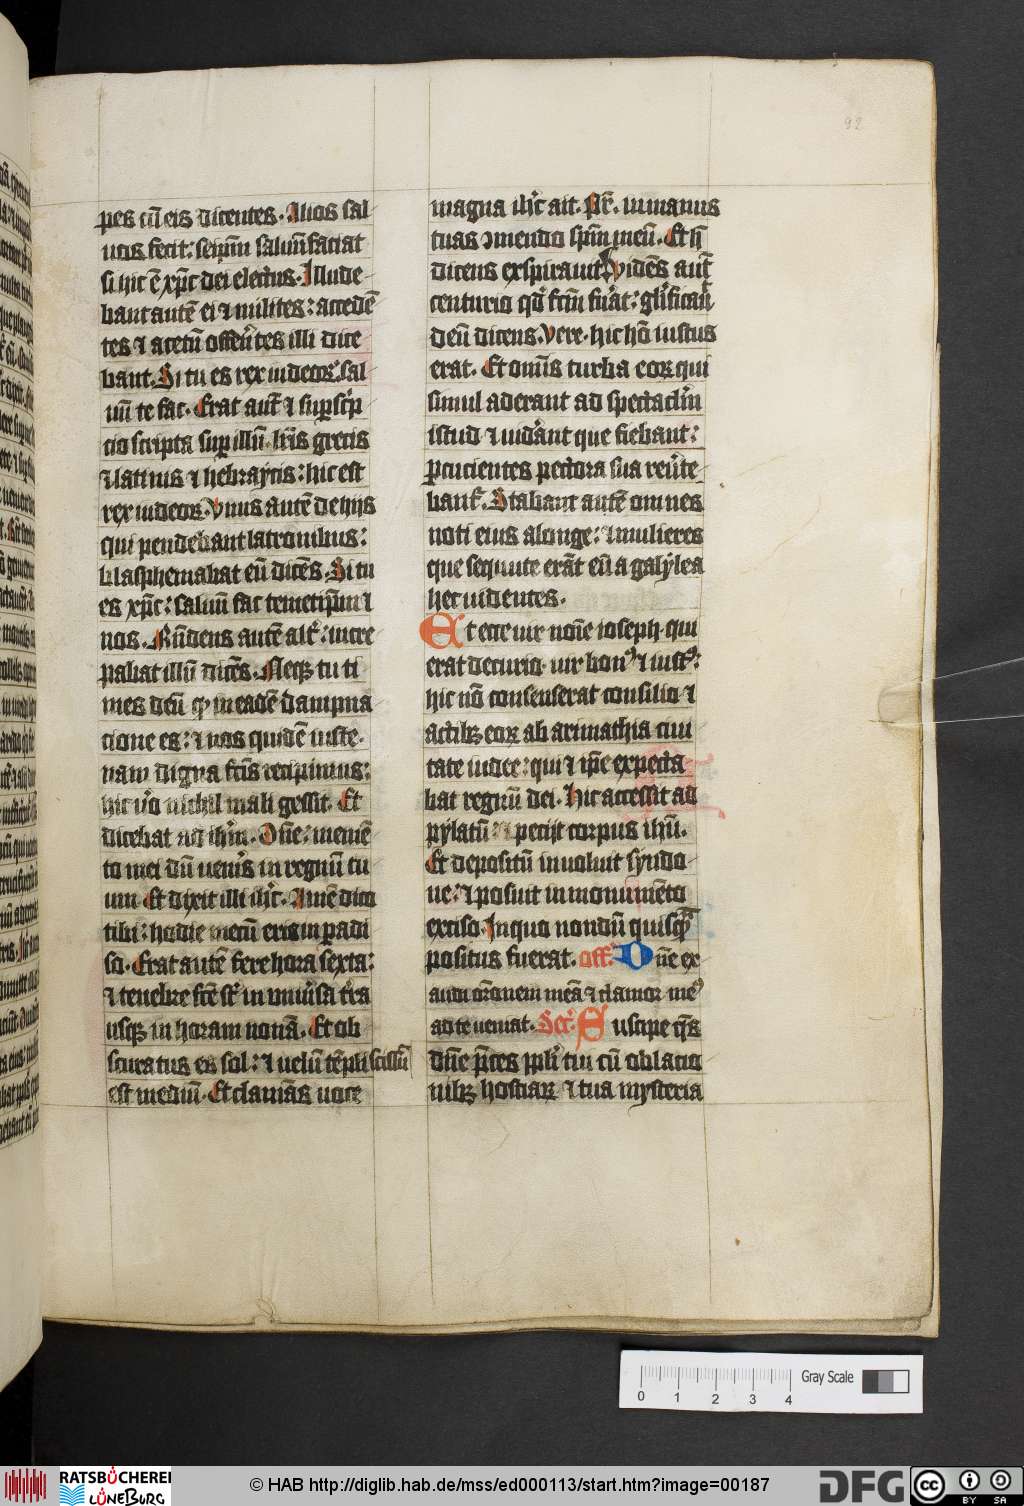 92
pes cū eis dicentes. Alios sal
uos fecit: seip̄m saluū faciat
si hic ē xp̄c dei electus. Illude
bant autē ei ⁊ milites: acceden̄
tes ⁊ acetū offerētes illi dice
bant. Si tu es rex iudeoꝝ sal
uū te fac. Erat aut̄ ⁊ suꝑscͥp
cio scripta suꝑ illū. lr̄is grecis
⁊ latinis ⁊ hebraycis: hic est
rex iudeoꝝ. Vnus autē de hijs
qui pendebant latronibus:
blasphemabat eū dicēs. Si tu
es xp̄c: saluū fac temetip̄m ⁊
nos. Rn̄dens autē alt̄: incre
pabat illū dicēs. Neqꝫ tu ti
mes deū qͥ in eadē dampna
cione es: ⁊ nos quidē iuste.
nam digna fcīs recipimus:
hic u̾o nichil mali gessit. Et
dicebat ad ih̄m. Dn̄e: memē
to mei dū uen̾is in regnū tu
um. Et dixit illi ih̄c. Amē dico
tibi: hodie mecū eris in ꝑadi
so. Erat autē fere hora sexta:
⁊ tenebre fcē st̄ in uniu̾sa tr̄a
usqꝫ in horam nonā. Et ob
scuratus es sol: ⁊ uelū tēpli scissū
est mediū. Et clamās uoce
magna ih̄c ait. Pr̄. in manus
tuas ꝯmendo sp̄m meū. Et h̄
dicens exspirauit. Vidēs aut̄
centurio qd̄ fcm̄ fuat̾: glͥficau̅
deū dicens. Vere. hic hō iustus
erat. Et omīs turba eoꝝ qui
simul aderant ad spectaclm̄
istud ⁊ uidāt que fiebant:
ꝑcucientes pectora sua reu̾te
bant̾. Stabant autē omnes
noti eius alonge: ⁊ mulieres
que secute erāt eū a galylea
hec uidentes.
Et ecce uir noīe ioseph. qui
erat decurio. uir bonꝰ ⁊ iustꝰ:
hic nō consenserat consilio ⁊
actibꝫ eoꝝ ab arimathia ciui
tate iudee: qui ⁊ ip̄e expecta
bat regnū dei. Hic accessit ad
pylatū: ⁊ pecijt corpus ih̄u.
Et depositū inuoluit syndo
ne: ⁊ posuit in monumēto
exciso. In quo nondū quisqͣ
positus fuerat. off. Dn̄e ex
audi or̄onem meā ⁊ clamor meꝰ
ad te ueniat. Secr̄. Suscipe q̄s
dn̄e p̄ces ppl̄i tui cū oblacio
nibꝫ hostiaꝝ ⁊ tua mysteria
0 1 2 3 4
Gray Scale
RATSBÜCHEREI
LÜNEBURG
© HAB http://diglib.hab.de/mss/ed000113/start.htm?image=00187
DFG
cc
BY SA